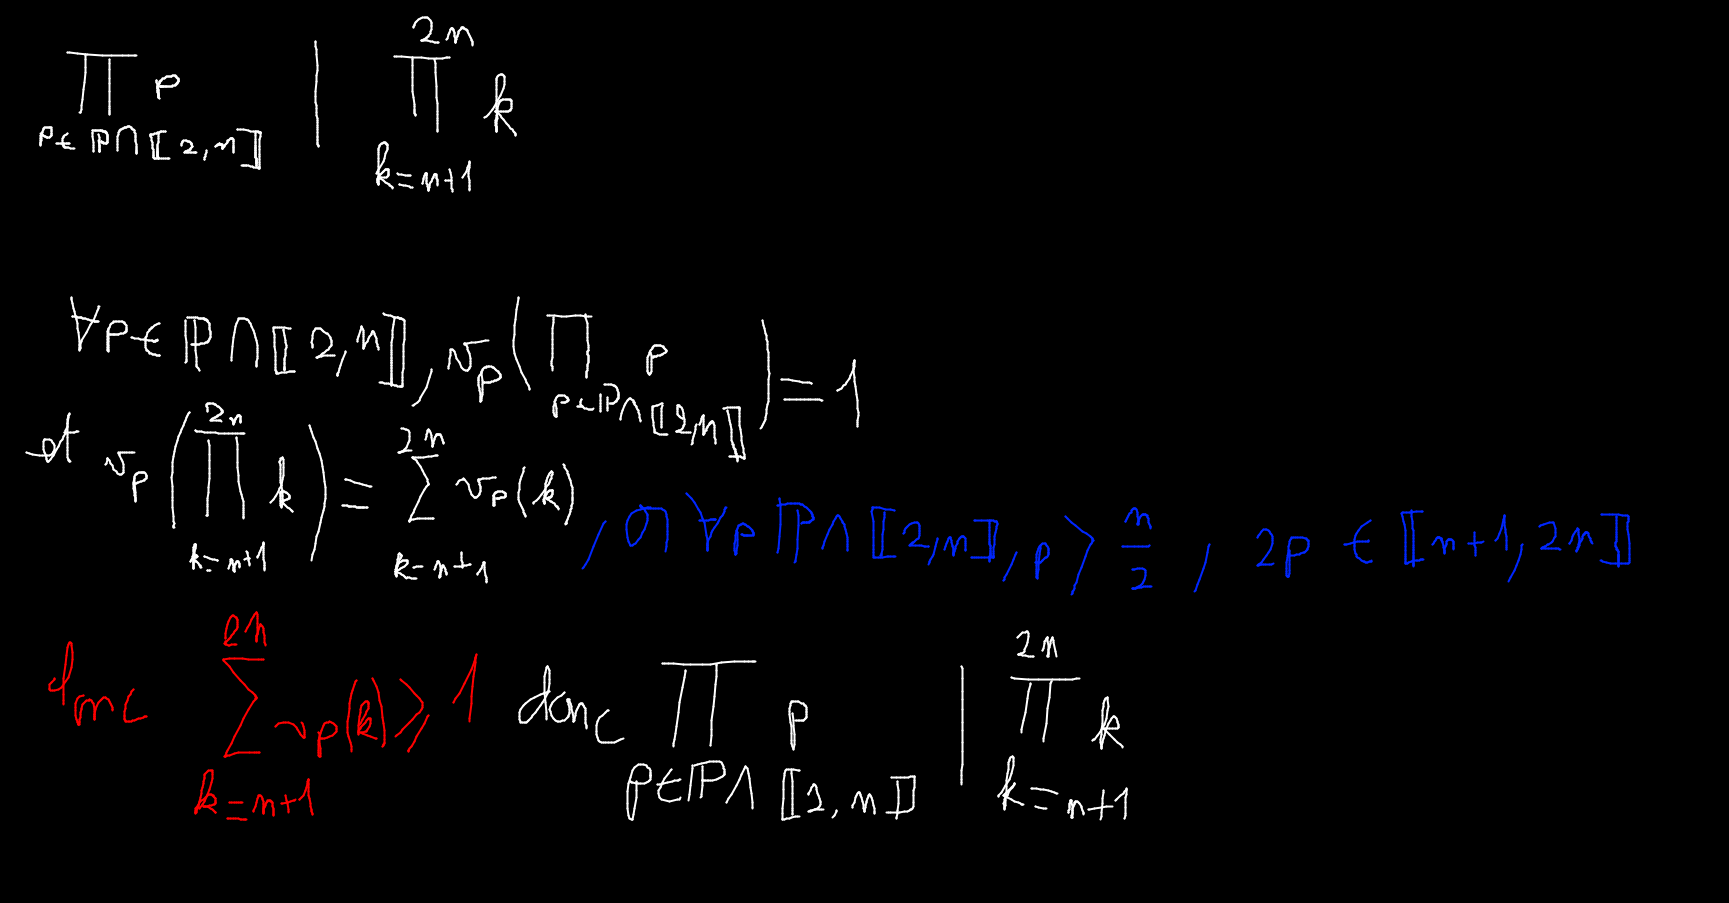 ∏_{p∈ℙ∩⟦2,n⟧} p | ∏_{k=n+1}^{2n} k
∀p∈ℙ∩⟦2,n⟧, v_p(∏_{p∈ℙ∩⟦2,n⟧} p) = 1
et v_p(∏_{k=n+1}^{2n} k) = ∑_{k=n+1}^{2n} v_p(k), or ∀p ℙ∩⟦2,n⟧, p > n/2, 2p ∈ ⟦n+1, 2n⟧
donc ∑_{k=n+1}^{2n} v_p(k) ⩾ 1 donc ∏_{p∈ℙ∩⟦2,n⟧} p | ∏_{k=n+1}^{2n} k